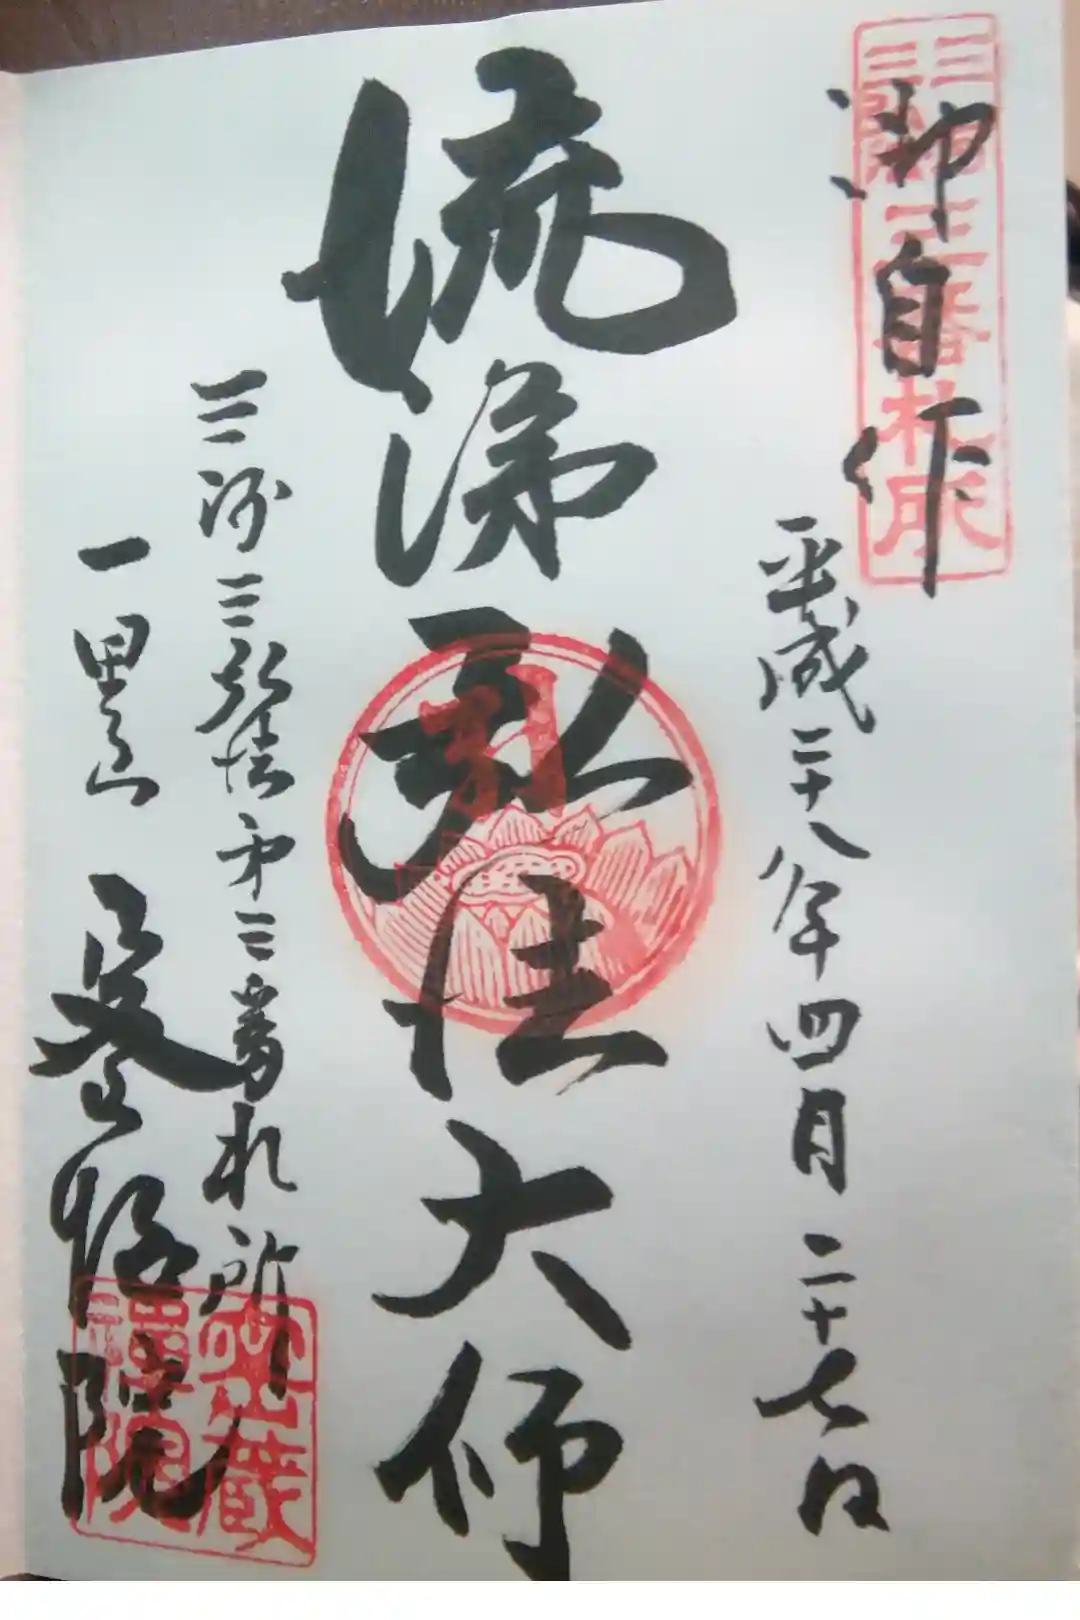 三番札所
御自作
平成二十八年四月二十七日
流涕弘法大師
三河三弘法第三番札所
一里山
密蔵
禅院